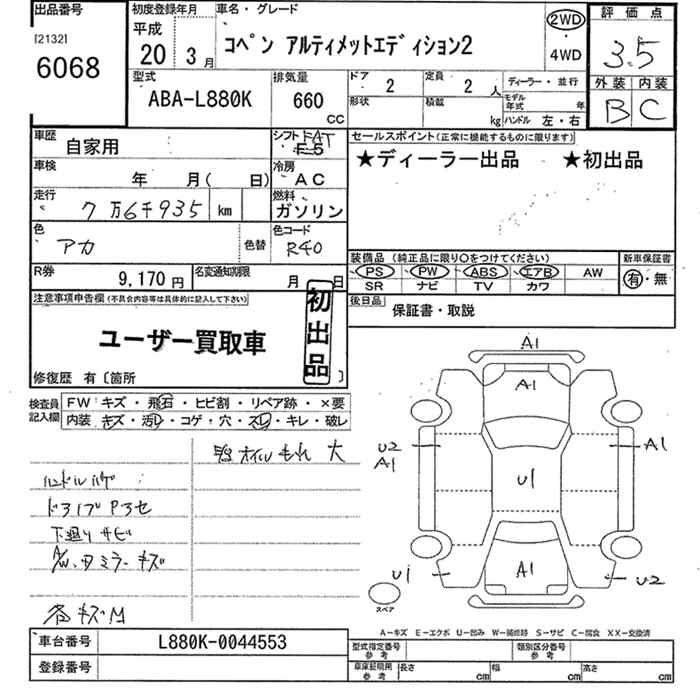 出品番号
[2132]
6068
初度登録年月
平成
20 3月
車名・グレード
コペン アルティメットエディション2
2WD
4WD
評価点
3.5
外装 内装
B C
型式
ABA-L880K
排気量
660
CC
ドア
2
定員
2人
形状
積載
kg
ディーラー・並行
モデル年式 年
ハンドル 左・右
車歴
自家用
シフト FAT
F5
セールスポイント(正常に機能するものに限ります)
★ディーラー出品 ★初出品
車検
年 月( 日)
冷房
AC
走行
7万6千935 km
燃料
ガソリン
色
アカ
色替
色コード
R40
R券
9,170円
名変通知期限
月 日
装備品(純正品に限り○をつけてください)
PS PW ABS エアB AW
SR ナビ TV カワ
新車保証書
有・無
後日品
保証書・取説
注意事項申告欄(不具合内容等は具体的に記入して下さい)
ユーザー買取車
初出品
修復歴 有〔箇所 〕
検査員記入欄
FW キズ・飛石・ヒビ割・リペア跡・×要
内装 キズ・汚レ・コゲ・穴・スレ・キレ・破レ
オイルもれ 大
ハンドルハゲ
下廻りサビ
キズ
A1
A1
U2
A1
A1
U1
U1
A1
U2
スペア
A-キズ E-エクボ U-凹み W-補修跡 S-サビ C-腐食 XX-交換済
車台番号
L880K-0044553
登録番号
型式指定番号
参考
類別区分番号
参考
車庫証明用
参考
長さ cm
幅 cm
高さ cm